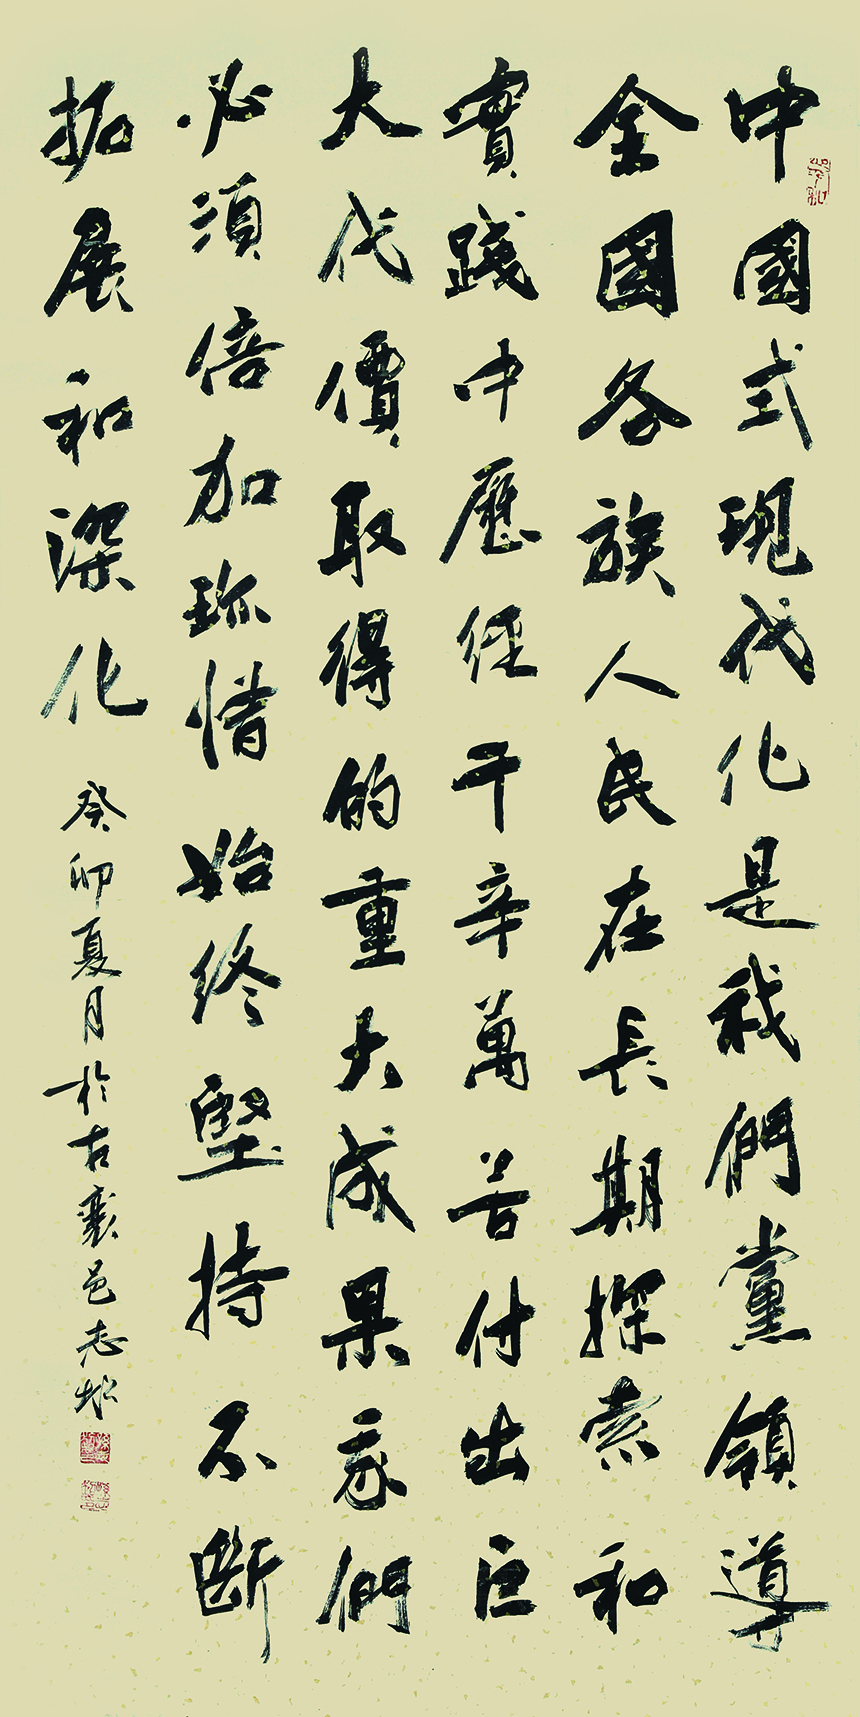 中國式現代化是我們黨領導
全國各族人民在長期探索和
實踐中歷經千辛萬苦付出巨
大代價取得的重大成果我們
必須倍加珎惜始終堅持不斷
拓展和深化
癸卯夏月於古襄邑志